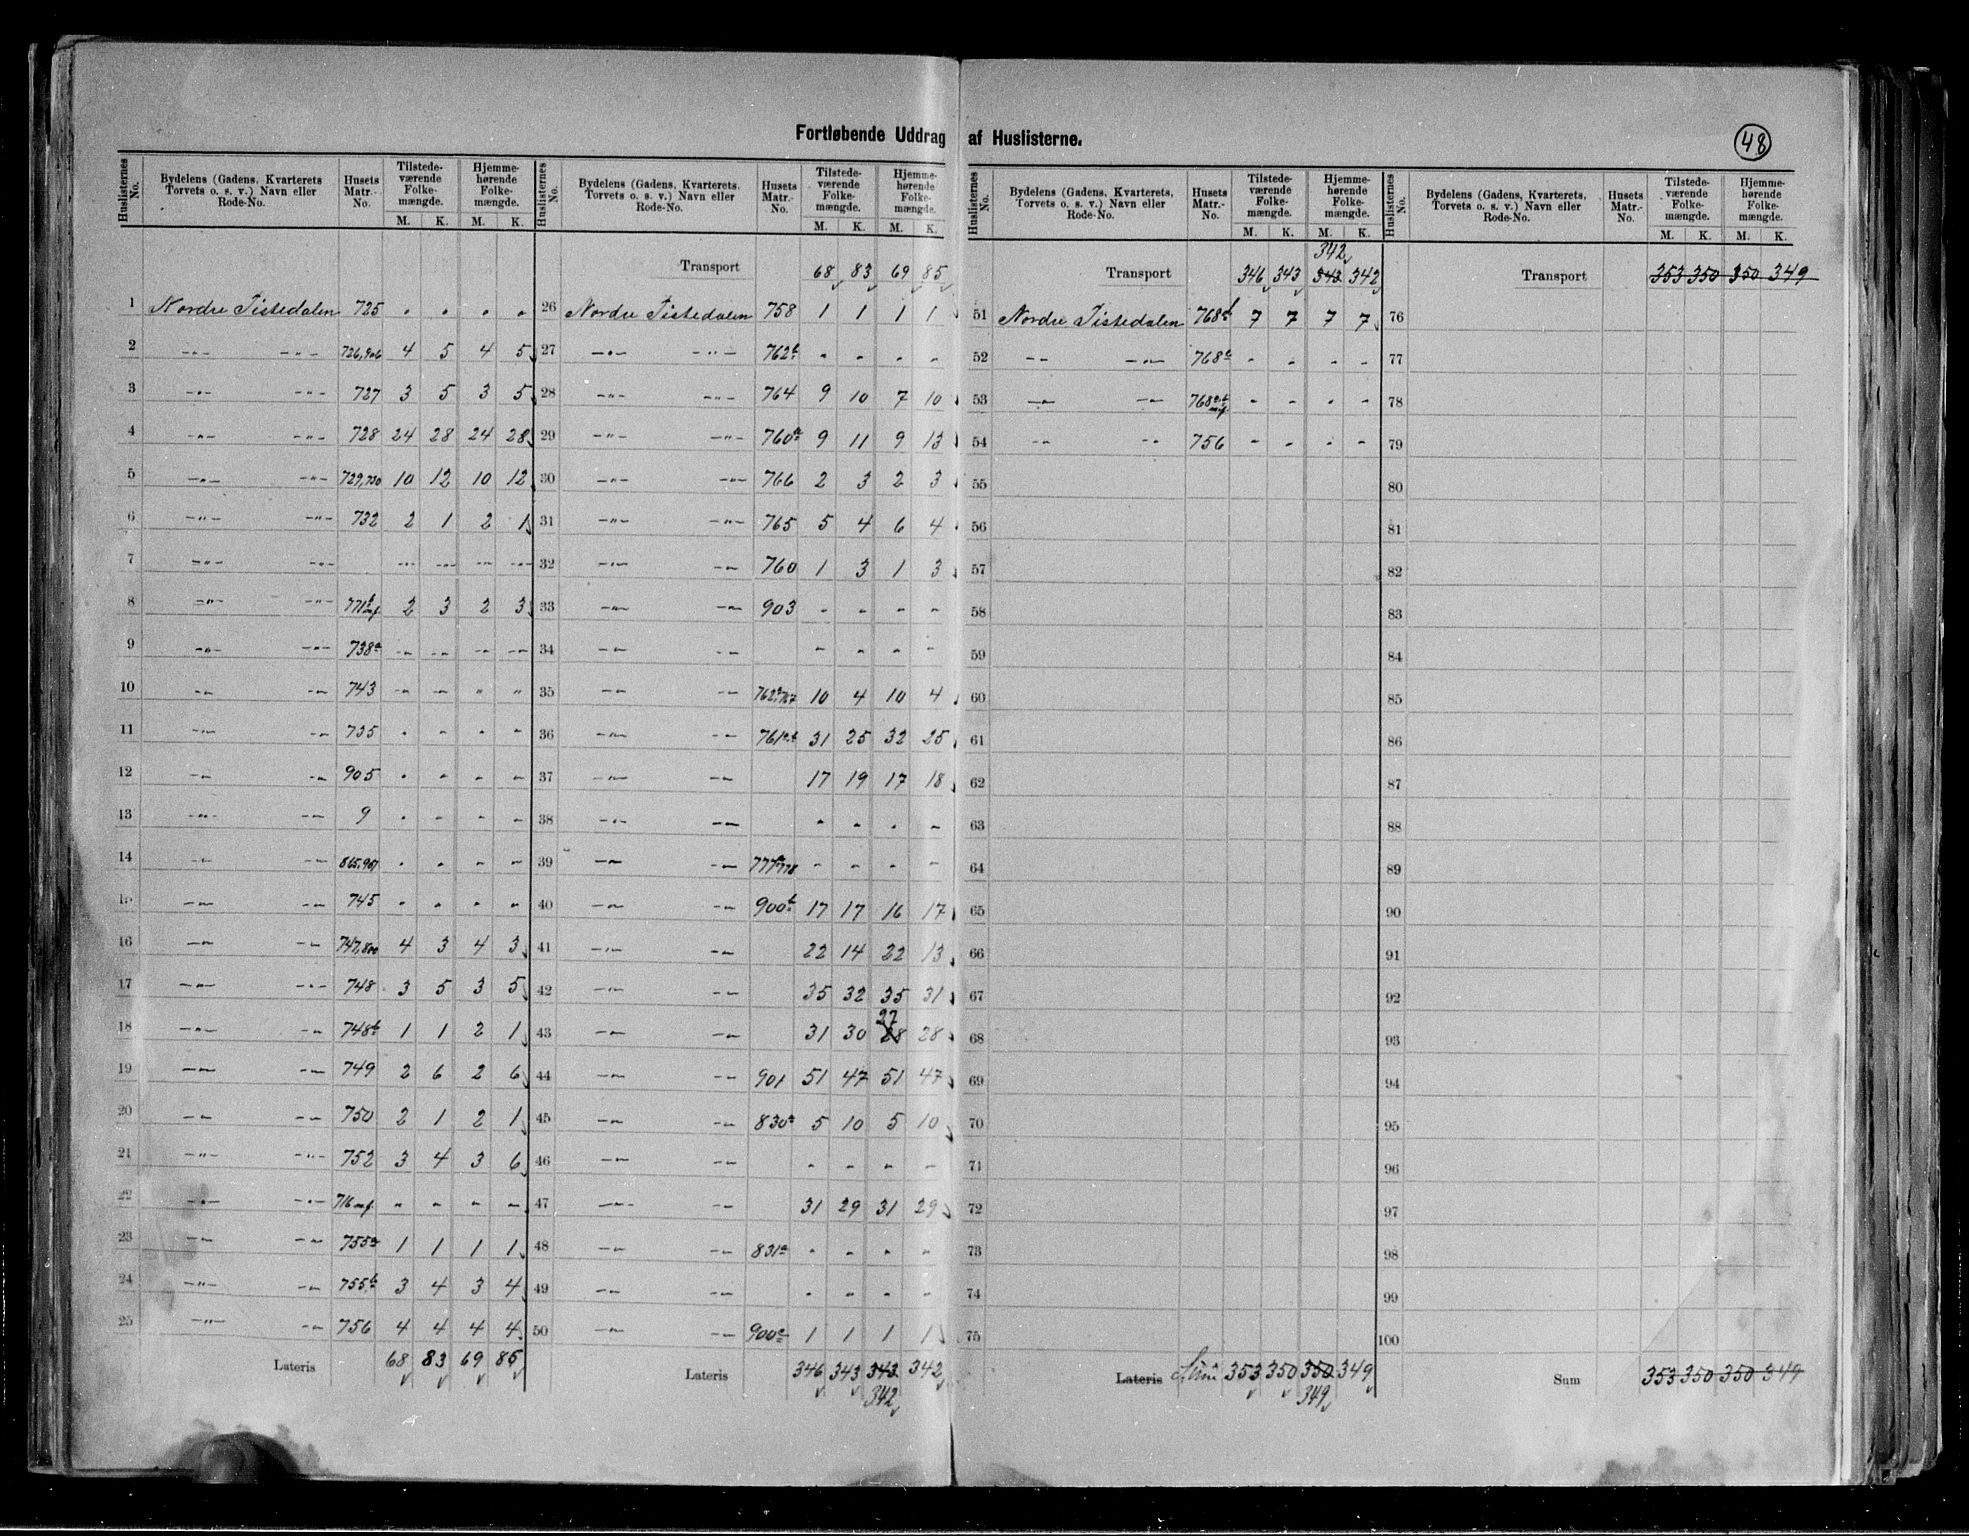 Fortløbende Uddrag af Huslisterne.
48
Huslisternes No. | Bydelens (Gadens, Kvarterets Torvets o. s. v.) Navn eller Rode-No. | Husets Matr.-No. | Tilstedeværende Folkemængde. M. K. | Hjemmehørende Folkemængde. M. K.
1 Nordre Tistedalen 725 " " " "
2 —"— —"— 726,906 4 5 4 5
3 —"— —"— 727 3 5 3 5
4 —"— —"— 728 24 28 24 28
5 —"— —"— 729,730 10 12 10 12
6 —"— —"— 732 2 1 2 1
7 —"— —"— —"— —"— —"— —"—
8 —"— —"— 771 b mf. 2 3 2 3
9 —"— —"— 738a —"— —"— —"— —"—
10 —"— —"— 743 —"— —"— " "
11 —"— —"— 735 " " " "
12 —"— —"— 905 " " " "
13 —"— —"— 9 " " " "
14 —"— —"— 865,907 " " " "
15 —"— —"— 745 " " " "
16 —"— —"— 747,800 4 3 4 3
17 —"— —"— 748 3 5 3 5
18 —"— —"— 748b 1 1 2 1
19 —"— —"— 749 2 6 2 6
20 —"— —"— 750 2 1 2 1
21 —"— —"— 752 3 4 3 6
22 —"— —"— 716 mf. " " " "
23 —"— —"— 755a 1 1 1 1
24 —"— —"— 755b 3 4 3 4
25 —"— —"— 756 4 4 4 4
Lateris 68 83 69 85
Huslisternes No. | Bydelens (Gadens, Kvarterets, Torvets o. s. v.) Navn eller Rode-No. | Husets Matr.-No. | Tilstedeværende Folkemængde. M. K. | Hjemmehørende Folkemængde. M. K.
Transport 68 83 69 85
26 Nordre Tistedalen 758 1 1 1 1
27 —"— —"— 762b " " " "
28 —"— —"— 764 9 10 7 10
29 —"— —"— 760a 9 11 9 13
30 —"— —"— 766 2 3 2 3
31 —"— —"— 765 5 4 6 4
32 —"— —"— 760 1 3 1 3
33 —"— —"— 903 " " " "
34 —"— —"— " " " "
35 —"— —"— 762a,767 10 4 10 4
36 —"— —"— 761a.b 31 25 32 25
37 —"— —"— 17 19 17 18
38 —"— —"— " " " "
39 —"— —"— 777,778 " " " "
40 —"— —"— 900b 17 17 16 17
41 —"— —"— 22 14 22 13
42 —"— —"— 35 32 35 31
43 —"— —"— 31 30 28 27 28
44 —"— —"— 901 51 47 51 47
45 —"— —"— 830a 5 10 5 10
46 —"— —"— " " " "
47 —"— —"— 31 29 31 29
48 —"— —"— 831a " " " "
49 —"— —"— " " " "
50 —"— —"— 900a 1 1 1 1
Lateris 346 343 343 342
342
Huslisternes No. | Bydelens (Gadens, Kvarterets, Torvets o. s. v.) Navn eller Rode-No. | Husets Matr.-No. | Tilstedeværende Folkemængde. M. K. | Hjemmehørende Folkemængde. M. K.
342
Transport 346 343 343 342
51 Nordre Tistedalen 768b 7 7 7 7
52 —"— —"— 768c " " " "
53 —"— —"— 768 mf. " " " "
54 —"— —"— 756 " " " "
55
56
57
58
59
60
61
62
63
64
65
66
67
68
69
70
71
72
73
74
75
Lateris 353 350 350 349
349
Huslisternes No. | Bydelens (Gadens, Kvarterets, Torvets o. s. v.) Navn eller Rode-No. | Husets Matr.-No. | Tilstedeværende Folkemængde. M. K. | Hjemmehørende Folkemængde. M. K.
Transport 353 350 350 349
76
77
78
79
80
81
82
83
84
85
86
87
88
89
90
91
92
93
94
95
96
97
98
99
100
Sum 353 350 350 349